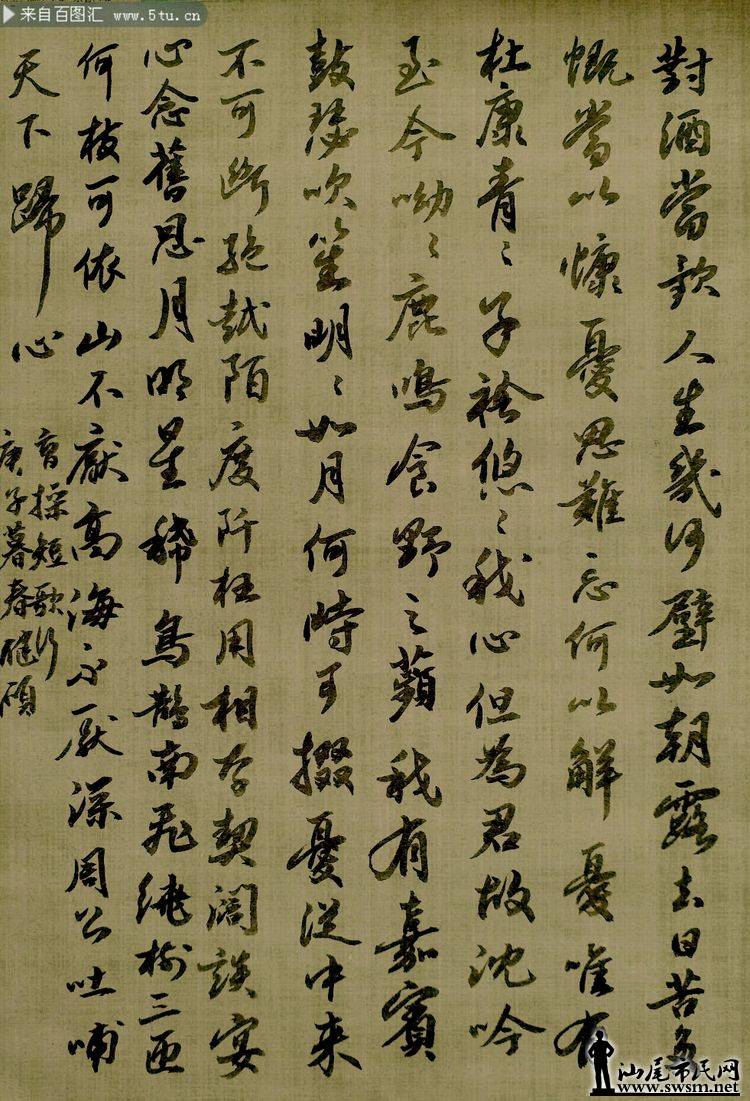 来自百图汇 www.5tu.cn
對酒當歌人生幾何璧如朝露去日苦多
慨當以慷憂思難忘何以解憂唯有
杜康青〻子衿悠〻我心但為君故沈吟
至今呦〻鹿鳴食野之蘋我有嘉賓
鼓瑟吹笙明〻如月何時可掇憂從中来
不可斷絶越陌度阡枉用相存契闊談宴
心念舊恩月明星稀烏鵲南飛繞樹三匝
何枝可依山不厭高海不厭深周公吐哺
天下歸心
曹操短歌行
庚子暮春
汕尾市民网
www.swsm.net